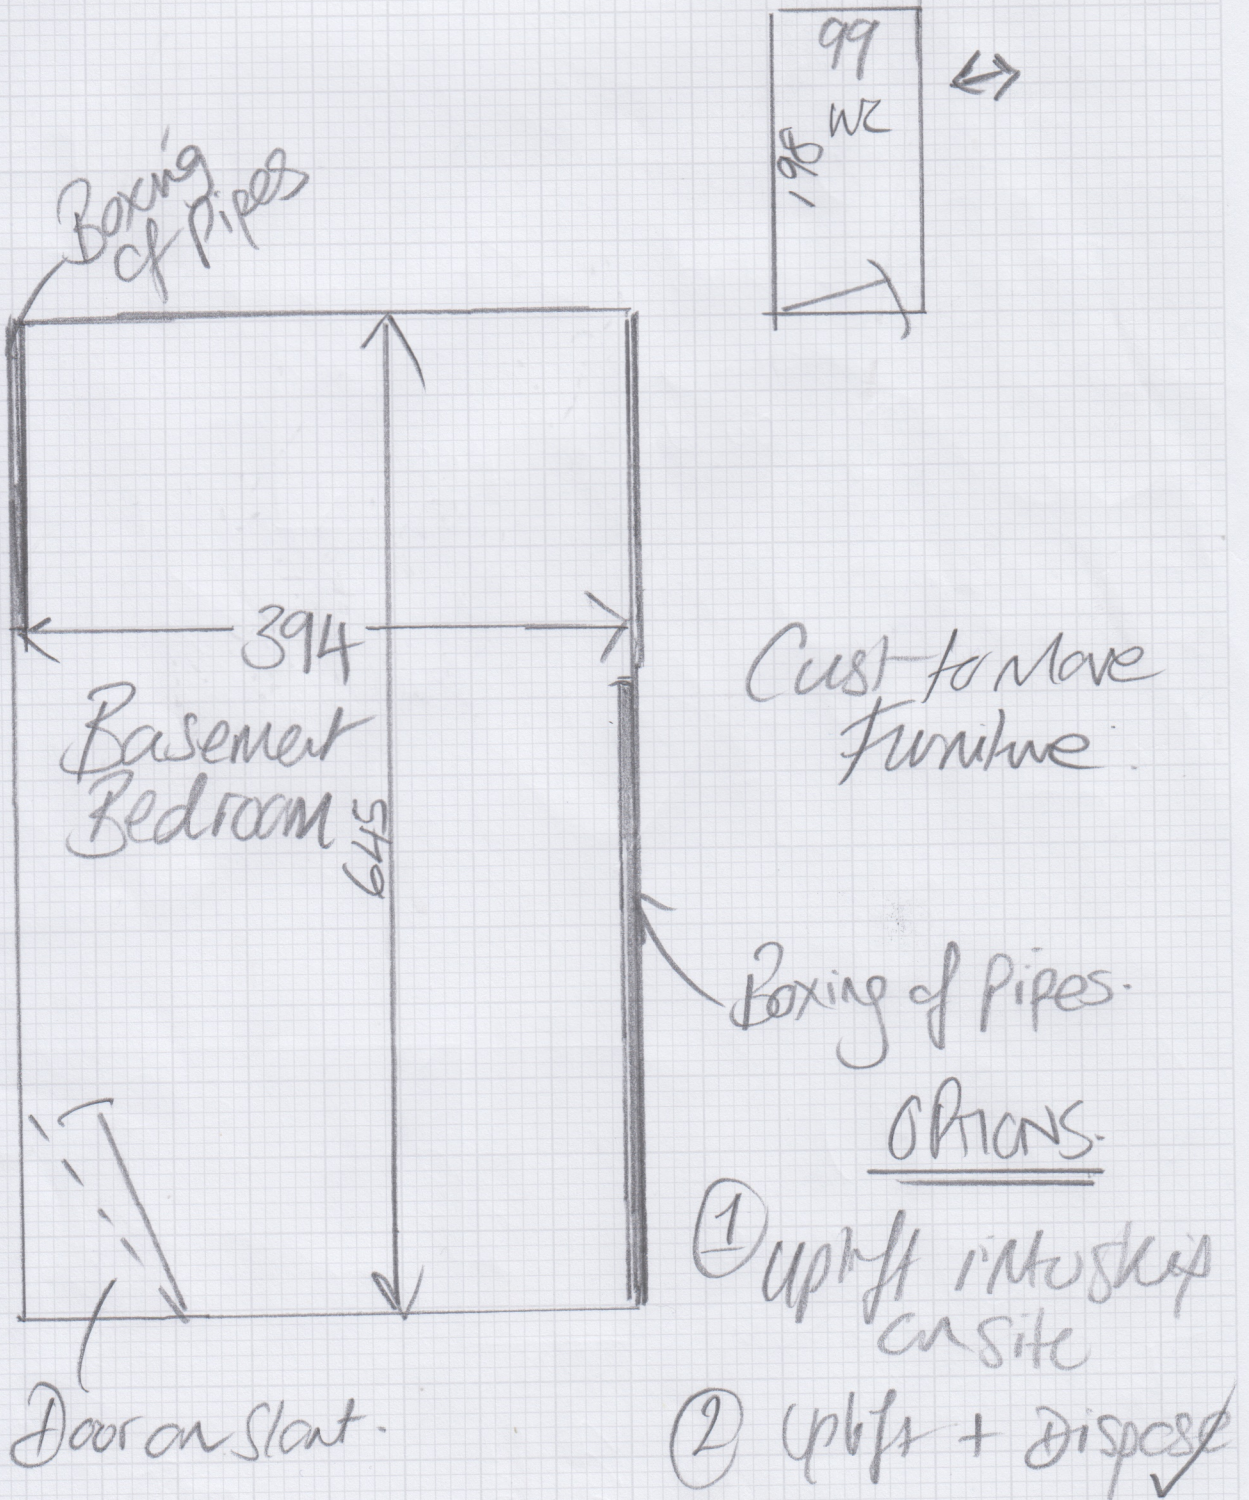 99
WC
198
Boxing
of Pipes
394
Basement
Bedroom
645
Cust to Move
Furniture.
Boxing of Pipes.
OPTIONS.
1 Uplift into skip
on site
2 Uplift + Dispose ✓
Door on Slant.